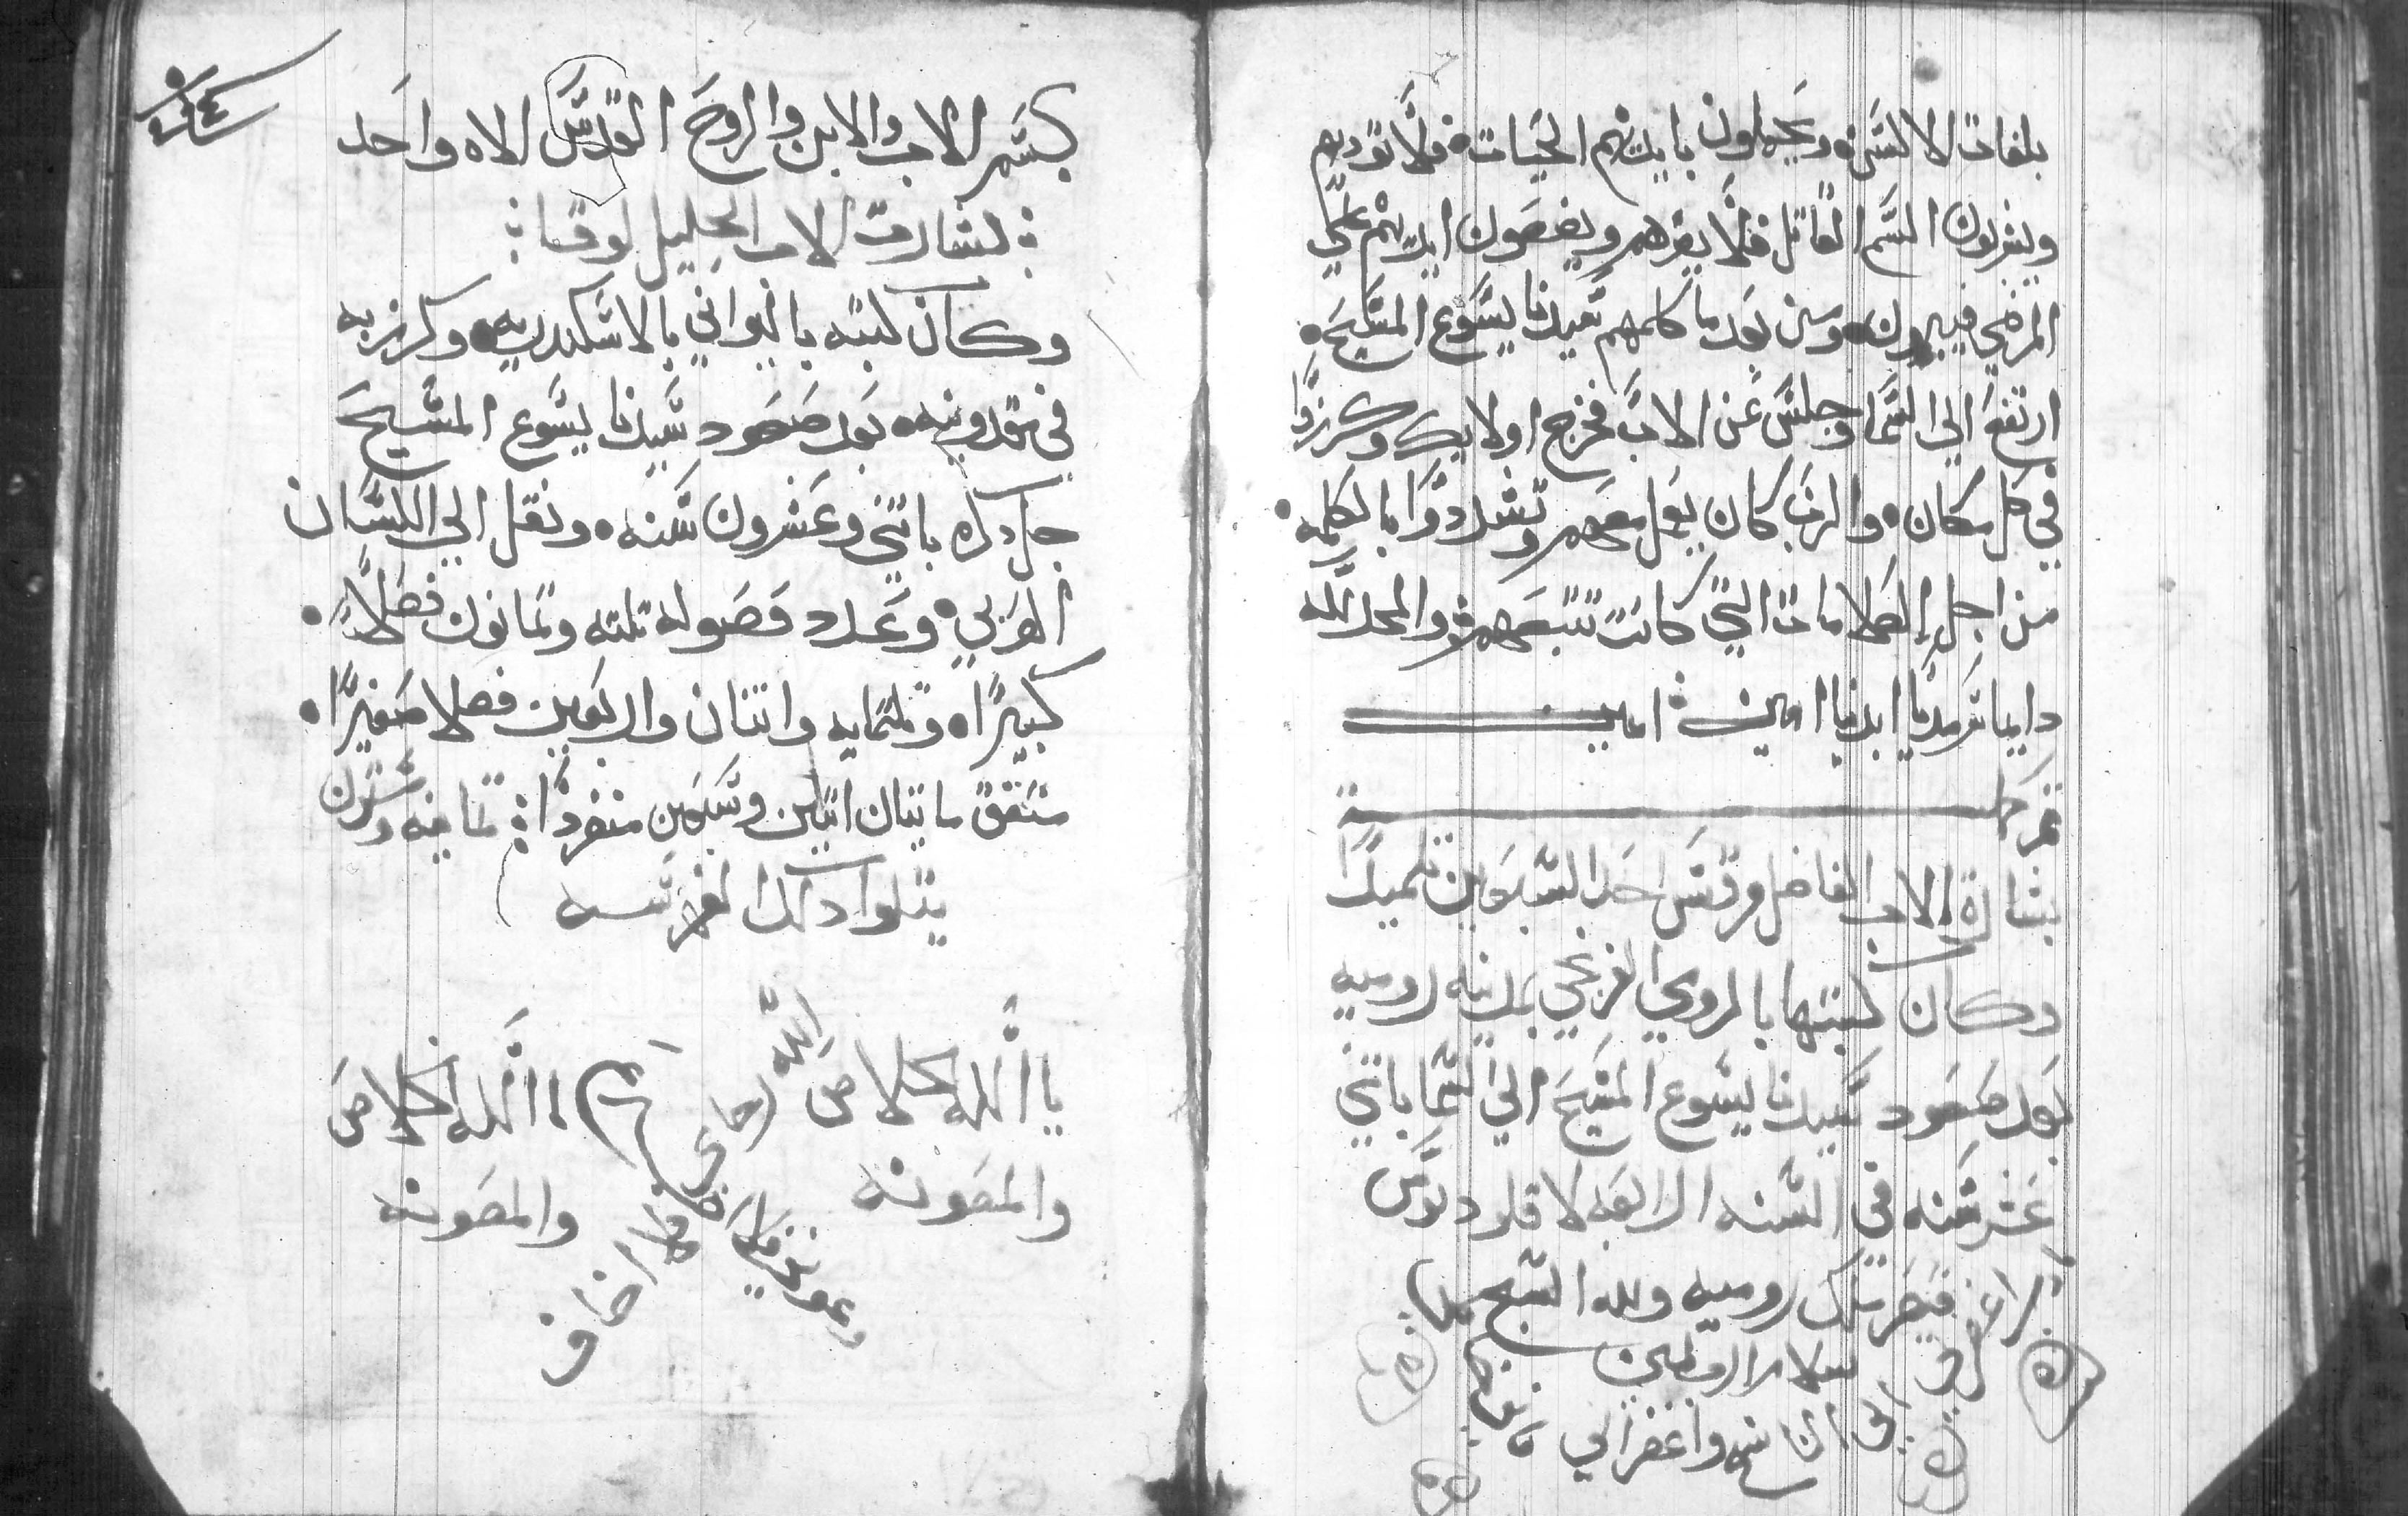 بلغات الالسن ويحملون بايديهم الحيات فلا توديهم
ويشربون السم القاتل فلا يضرهم ويضعون ايديهم علي
المرضي فيبرون ومن بعد ما كلمهم سيدنا يسوع المسيح
ارتفع الي السما وجلس عن الاب فخرج اولايك وكرزوا
في كل مكان والرب كان يعمل معهم وتشددوا بالكلمه
من اجل العلامات التي كانت تتبعهم والمجد لله
دايما سرمديا ابديا امين امين
بشارة الاب الفاضل مرقس احد السبعين تلميدا
وكان كتبتها بالرومي الفرنجي بمدينه روميه
بعد صعود سيدنا يسوع المسيح الي السما باتني
عشر سنه في السنه الرابعه لاقلوديوس
قيصر ملك روميه ولله السبح
واغفر لي
بسم الاب والابن والروح القدس الاه واحد
بشارة الاب الجليل لوقا
وكان كتبه باليواني بالاسكندريه وكرز به
في مقدونيه بعد صعود سيدنا يسوع المسيح
جل دكره باتني وعشرون سنه ونقل الي اللسان
العربي وعدد فصوله تلته وتمانون فصلا
كبيرا وتلتمايه واتنان واربعين فصلا صغيرا
متفق مايتان اتنين وسبعين منفردا تمانيه وستون
يتلوا دالك الفهرسه
يا الله الخلاص الله يا الله الخلاص
والمعونه والمعونه